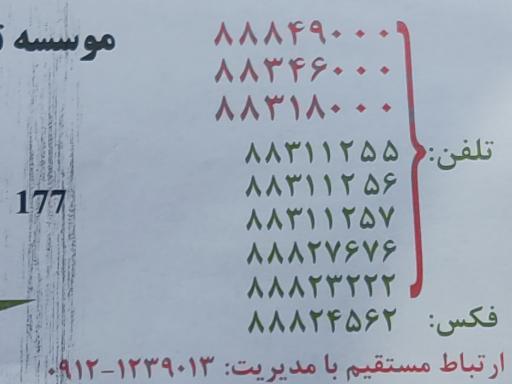 موسسه
۸۸۸۴۹۰۰۰
۸۸۳۴۶۰۰۰
۸۸۳۱۸۰۰۰
تلفن: ۸۸۳۱۱۲۵۵
۸۸۳۱۱۲۵۶
177
۸۸۳۱۱۲۵۷
۸۸۸۲۷۶۷۶
۸۸۸۲۳۲۲۲
فکس: ۸۸۸۲۴۵۶۲
ارتباط مستقیم با مدیریت: ۰۹۱۲-۱۲۳۹۰۱۳